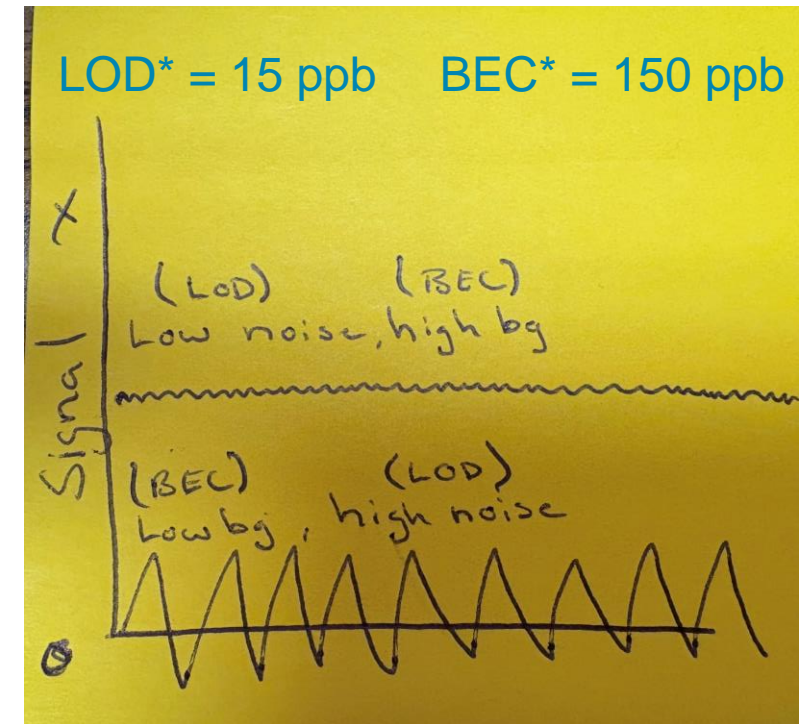 LOD* = 15 ppb BEC* = 150 ppb
Signal X
(LOD) (BEC)
Low noise, high bg
(BEC) (LOD)
Low bg, high noise
0